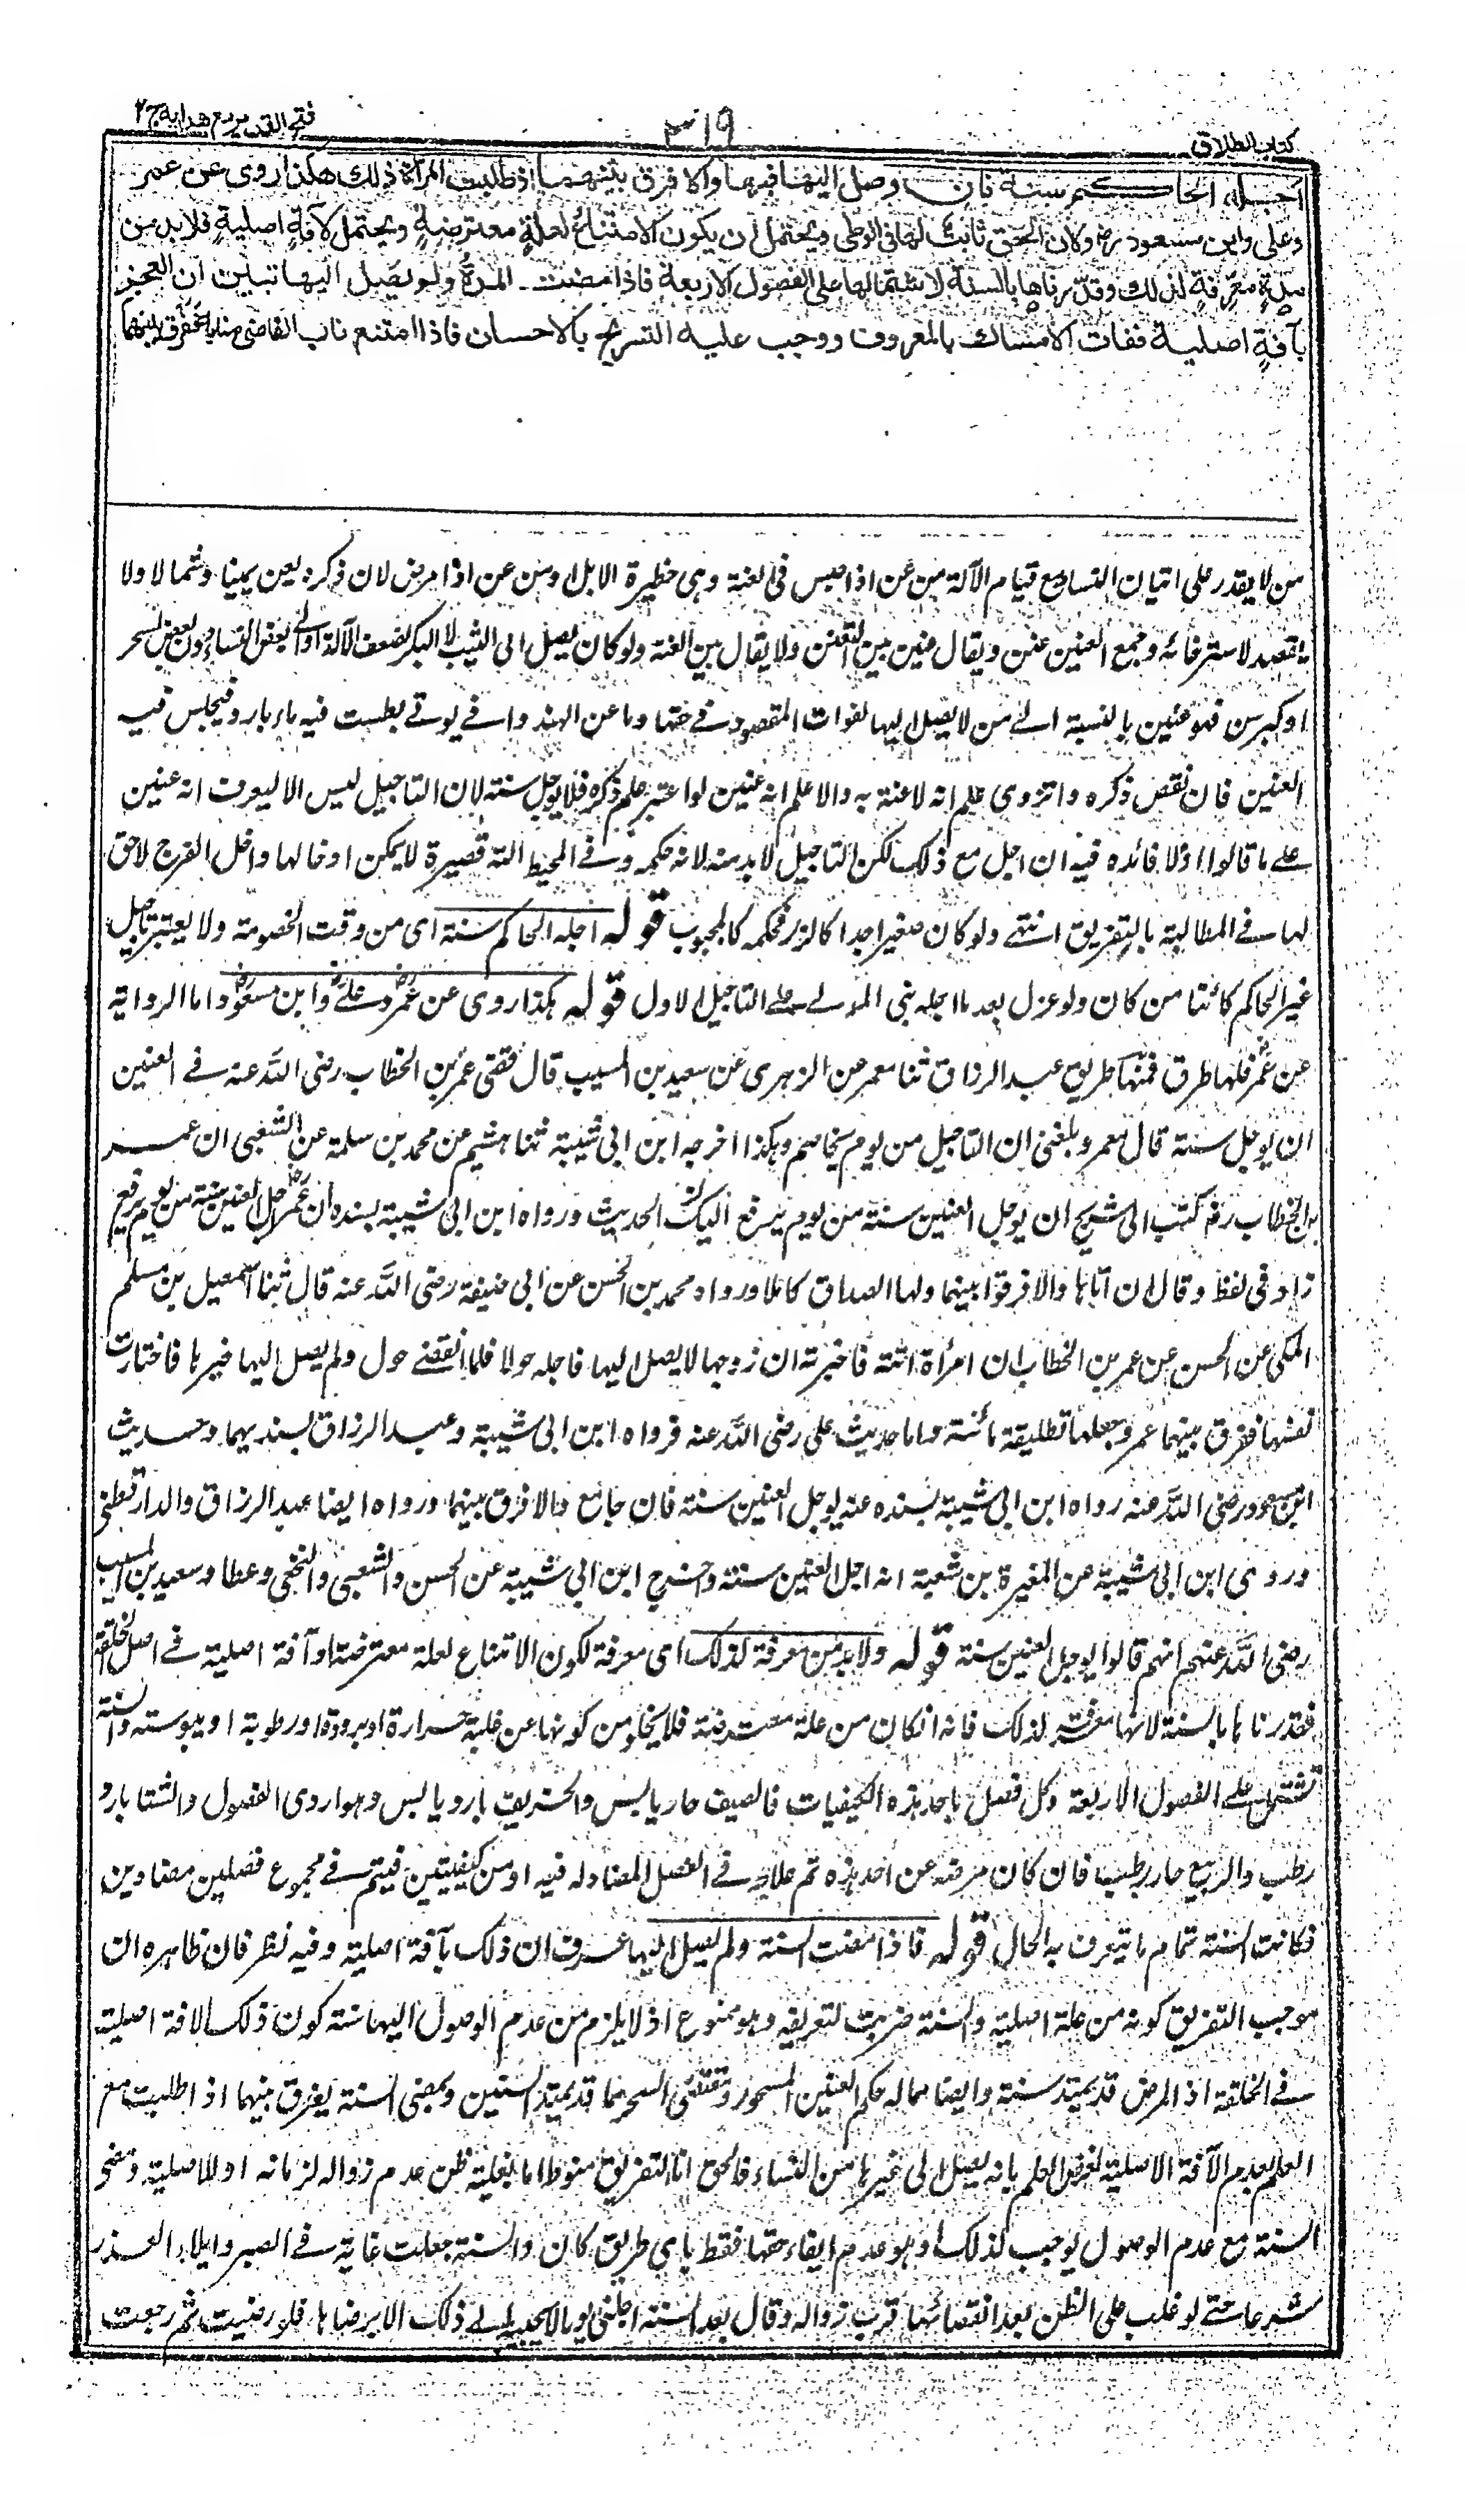 كتاب الطلاق
٣١٩
فتح القدير مع هداية ج ٢
اجله الحاكم سنة فان وصل اليها فبها والا فرق بينهما اذا طلبت المرأة ذلك هكذا روى عن عمر
وعلى وابن مسعود رض ولان الحق ثابت لها فى الوطى ويحتمل ان يكون الامتناع لعلة معترضة ويحتمل لآفة اصلية فلابد من
مدة معرفة لذلك وقدرناها بالسنة لاشتمالها على الفصول الاربعة فاذا مضت المدة ولم يصل اليها تبين ان العجز
بآفة اصلية ففات الامساك بالمعروف ووجب عليه التسريح بالاحسان فاذا امتنع ناب القاضى منابه ففرق بينهما
من لا يقدر على اتيان النساء مع قيام الآلة من عن اذا حبس فى العنة وهى حظيرة الابل او من عن اذا عرض لان ذكره يعن يمينا وشمالا ولا
يقصد لاسترخائه وجمع العنين عنن ويقال عنين بين التعنن ولا يقال بين العنة ولو كان يصل الى الثيب لا البكر لضعف الآلة او الى بعض النساء دون بعض لسحر
او كبر سن فهو عنين بالنسبة الى من لا يصل اليها لفوات المقصود فى حقها وما عن الهندوانى يؤتى بطست فيه ماء بارد فيجلس فيه
العنين فان نقص ذكره وانزوى علم انه لا عنة به والا علم انه عنين لو اعتبر علم ذكره فلا يؤجل سنة لان التاجيل ليس الا ليعرف انه عنين
على ما قالوا اذ لا فائدة فيه ان اجل مع ذلك لكن التاجيل لابد منه لانه حكمه وفى المحيط آلته قصيرة لا يمكن ادخالها داخل الفرج لا حق
لها فى المطالبة بالتفريق انتهى ولو كان صغيرا جدا كالزر فحكمه كالمجبوب قوله اجله الحاكم سنة اى من وقت الخصومة ولا يعتبر تاجيل
غير الحاكم كائنا من كان ولو عزل بعد ما اجله بنى المولى على التاجيل الاول قوله هكذا روى عن عمر وعلى وابن مسعود اما الرواية
عن عمر فلها طرق فمنها طريق عبد الرزاق ثنا معمر عن الزهرى عن سعيد بن المسيب قال قضى عمر بن الخطاب رضى الله عنه فى العنين
ان يؤجل سنة قال معمر وبلغنى ان التاجيل من يوم يخاصم وهكذا اخرجه ابن ابى شيبة ثنا هشيم عن محمد بن سلمة عن الشعبى ان عمر
بن الخطاب رض كتب الى شريح ان يؤجل العنين سنة من يوم يرفع اليك الحديث ورواه ابن ابى شيبة بسنده ان عمر اجل العنين سنة من يوم يرفع
زاد فى لفظ وقال ان اتاها والا فرقوا بينهما ولها الصداق كاملا ورواه محمد بن الحسن عن ابى حنيفة رضى الله عنه قال ثنا اسمعيل بن مسلم
المكى عن الحسن عن عمر بن الخطاب ان امرأة اتته فاخبرته ان زوجها لا يصل اليها فاجله حولا فلما انقضى حول ولم يصل اليها خيرها فاختارت
نفسها ففرق بينهما عمر وجعلها تطليقة بائنة واما حديث على رضى الله عنه فرواه ابن ابى شيبة وعبد الرزاق بسنديهما وحديث
ابن مسعود رضى الله عنه رواه ابن ابى شيبة بسنده عنه يؤجل العنين سنة فان جامع والا فرق بينهما ورواه ايضا عبد الرزاق والدارقطنى
وروى ابن ابى شيبة عن المغيرة بن شعبة انه اجل العنين سنة واخرج ابن ابى شيبة عن الحسن والشعبى والنخعى وعطاء وسعيد بن المسيب
رضى الله عنهم انهم قالوا يؤجل العنين سنة قوله ولابد من معرفة لذلك اى معرفة لكون الامتناع لعلة معترضة او آفة اصلية فى اصل الخلقة
فقدرناها بالسنة لانها معرفة لذلك فانه ان كان من علة معترضة فلا يخلو من كونها عن غلبة حرارة او برودة او رطوبة او يبوسة والسنة
تشتمل على الفصول الاربعة وكل فصل باحد هذه الكيفيات فالصيف حار يابس والخريف بارد يابس وهو اردى الفصول والشتاء بارد
رطب والربيع حار رطب فان كان مرضه عن احد هذه تم علاجه فى الفصل المضاد له فيه او من كيفيتين فيتم فى مجموع فصلين مضادين
فكانت السنة تمام ما يتعرف به الحال قوله فاذا مضت السنة ولم يصل اليها عرف ان ذلك بآفة اصلية وفيه نظر فان ظاهره ان
موجب التفريق كونه من علة اصلية والسنة ضربت لتعريفه وهو ممنوع اذ لا يلزم من عدم الوصول اليها سنة كون ذلك لآفة اصلية
فى الخلقة اذ المرض قد يمتد سنة وايضا مما له حكم العنين المسحور ومقتضى السحر مما قد يمتد السنين وبمضى السنة يفرق بينهما اذا طلبت مع
العلم بعدم الآفة الاصلية لفرض العلم بانه يصل الى غيرها من النساء فالحق ان التفريق منوط اما بغلبة ظن عدم زواله لزمانه او للاصلية ومضى
السنة مع عدم الوصول يوجب لذلك او هو عدم ايفاء حقها فقط باى طريق كان والسنة جعلت غاية فى الصبر وابلاء العذر
شرعا حتى لو غلب على الظن بعد انقضائها قرب زواله وقال بعد السنة اجلنى يوما لا يجيبه الى ذلك الا برضاها فلو رضيت ثم رجعت